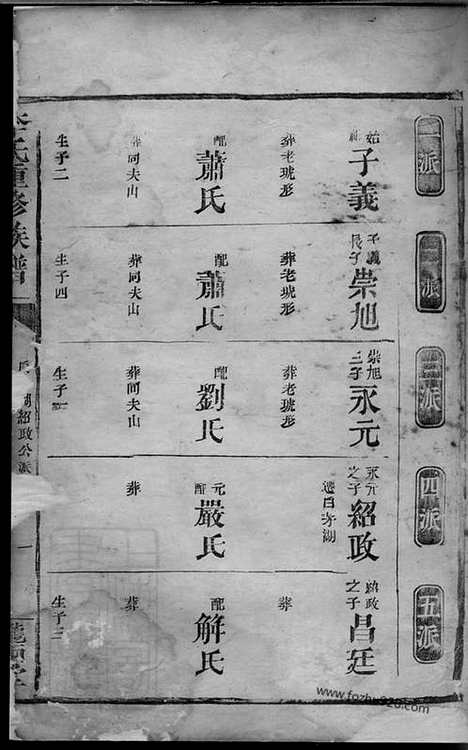 一派
二派
三派
四派
五派
始
子義
葬老琥形
配
蕭氏
葬同夫山
生子二
子義
長子
崇旭
葬老琥形
配
蕭氏
葬同夫山
生子四
崇旭
三子
永元
葬老琥形
配
劉氏
葬同夫山
生子一
永元
之子
紹政
遷白
湖
元
配
嚴氏
葬
紹政
之子
昌廷
葬
配
解氏
葬
生子三
李氏重修族譜
湖紹政公派
一
www.fozhu920.com